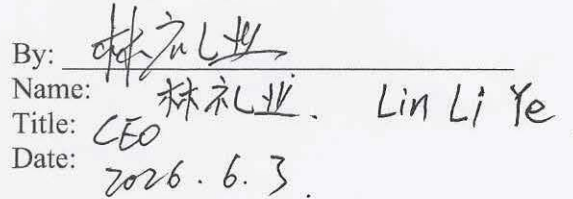 By: 林礼业
Name: 林礼业. Lin Li Ye
Title: CEO
Date: 2026.6.3.